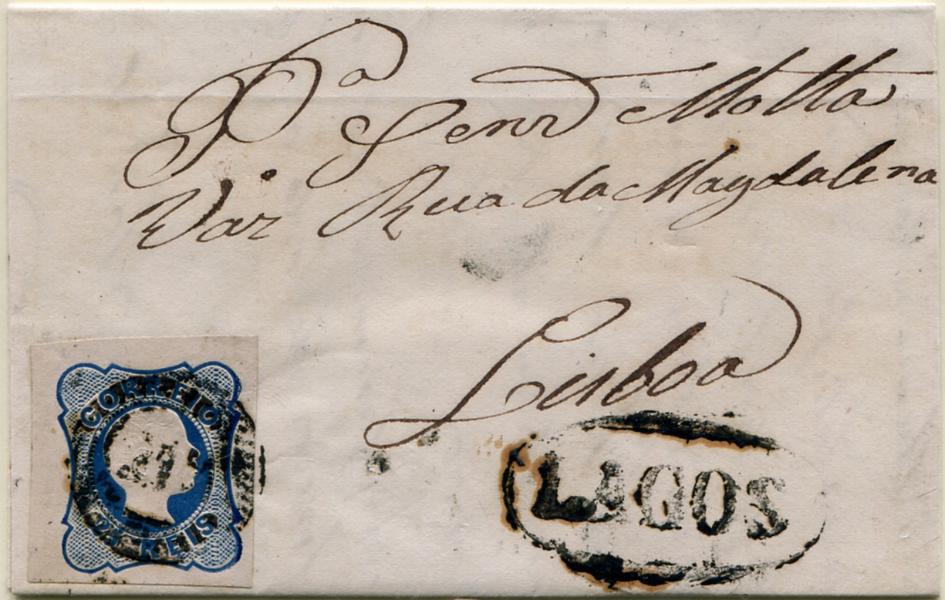 Pª Senr Motta
Rua da Magdalena
Lisboa
CORREIO
REIS
LAGOS